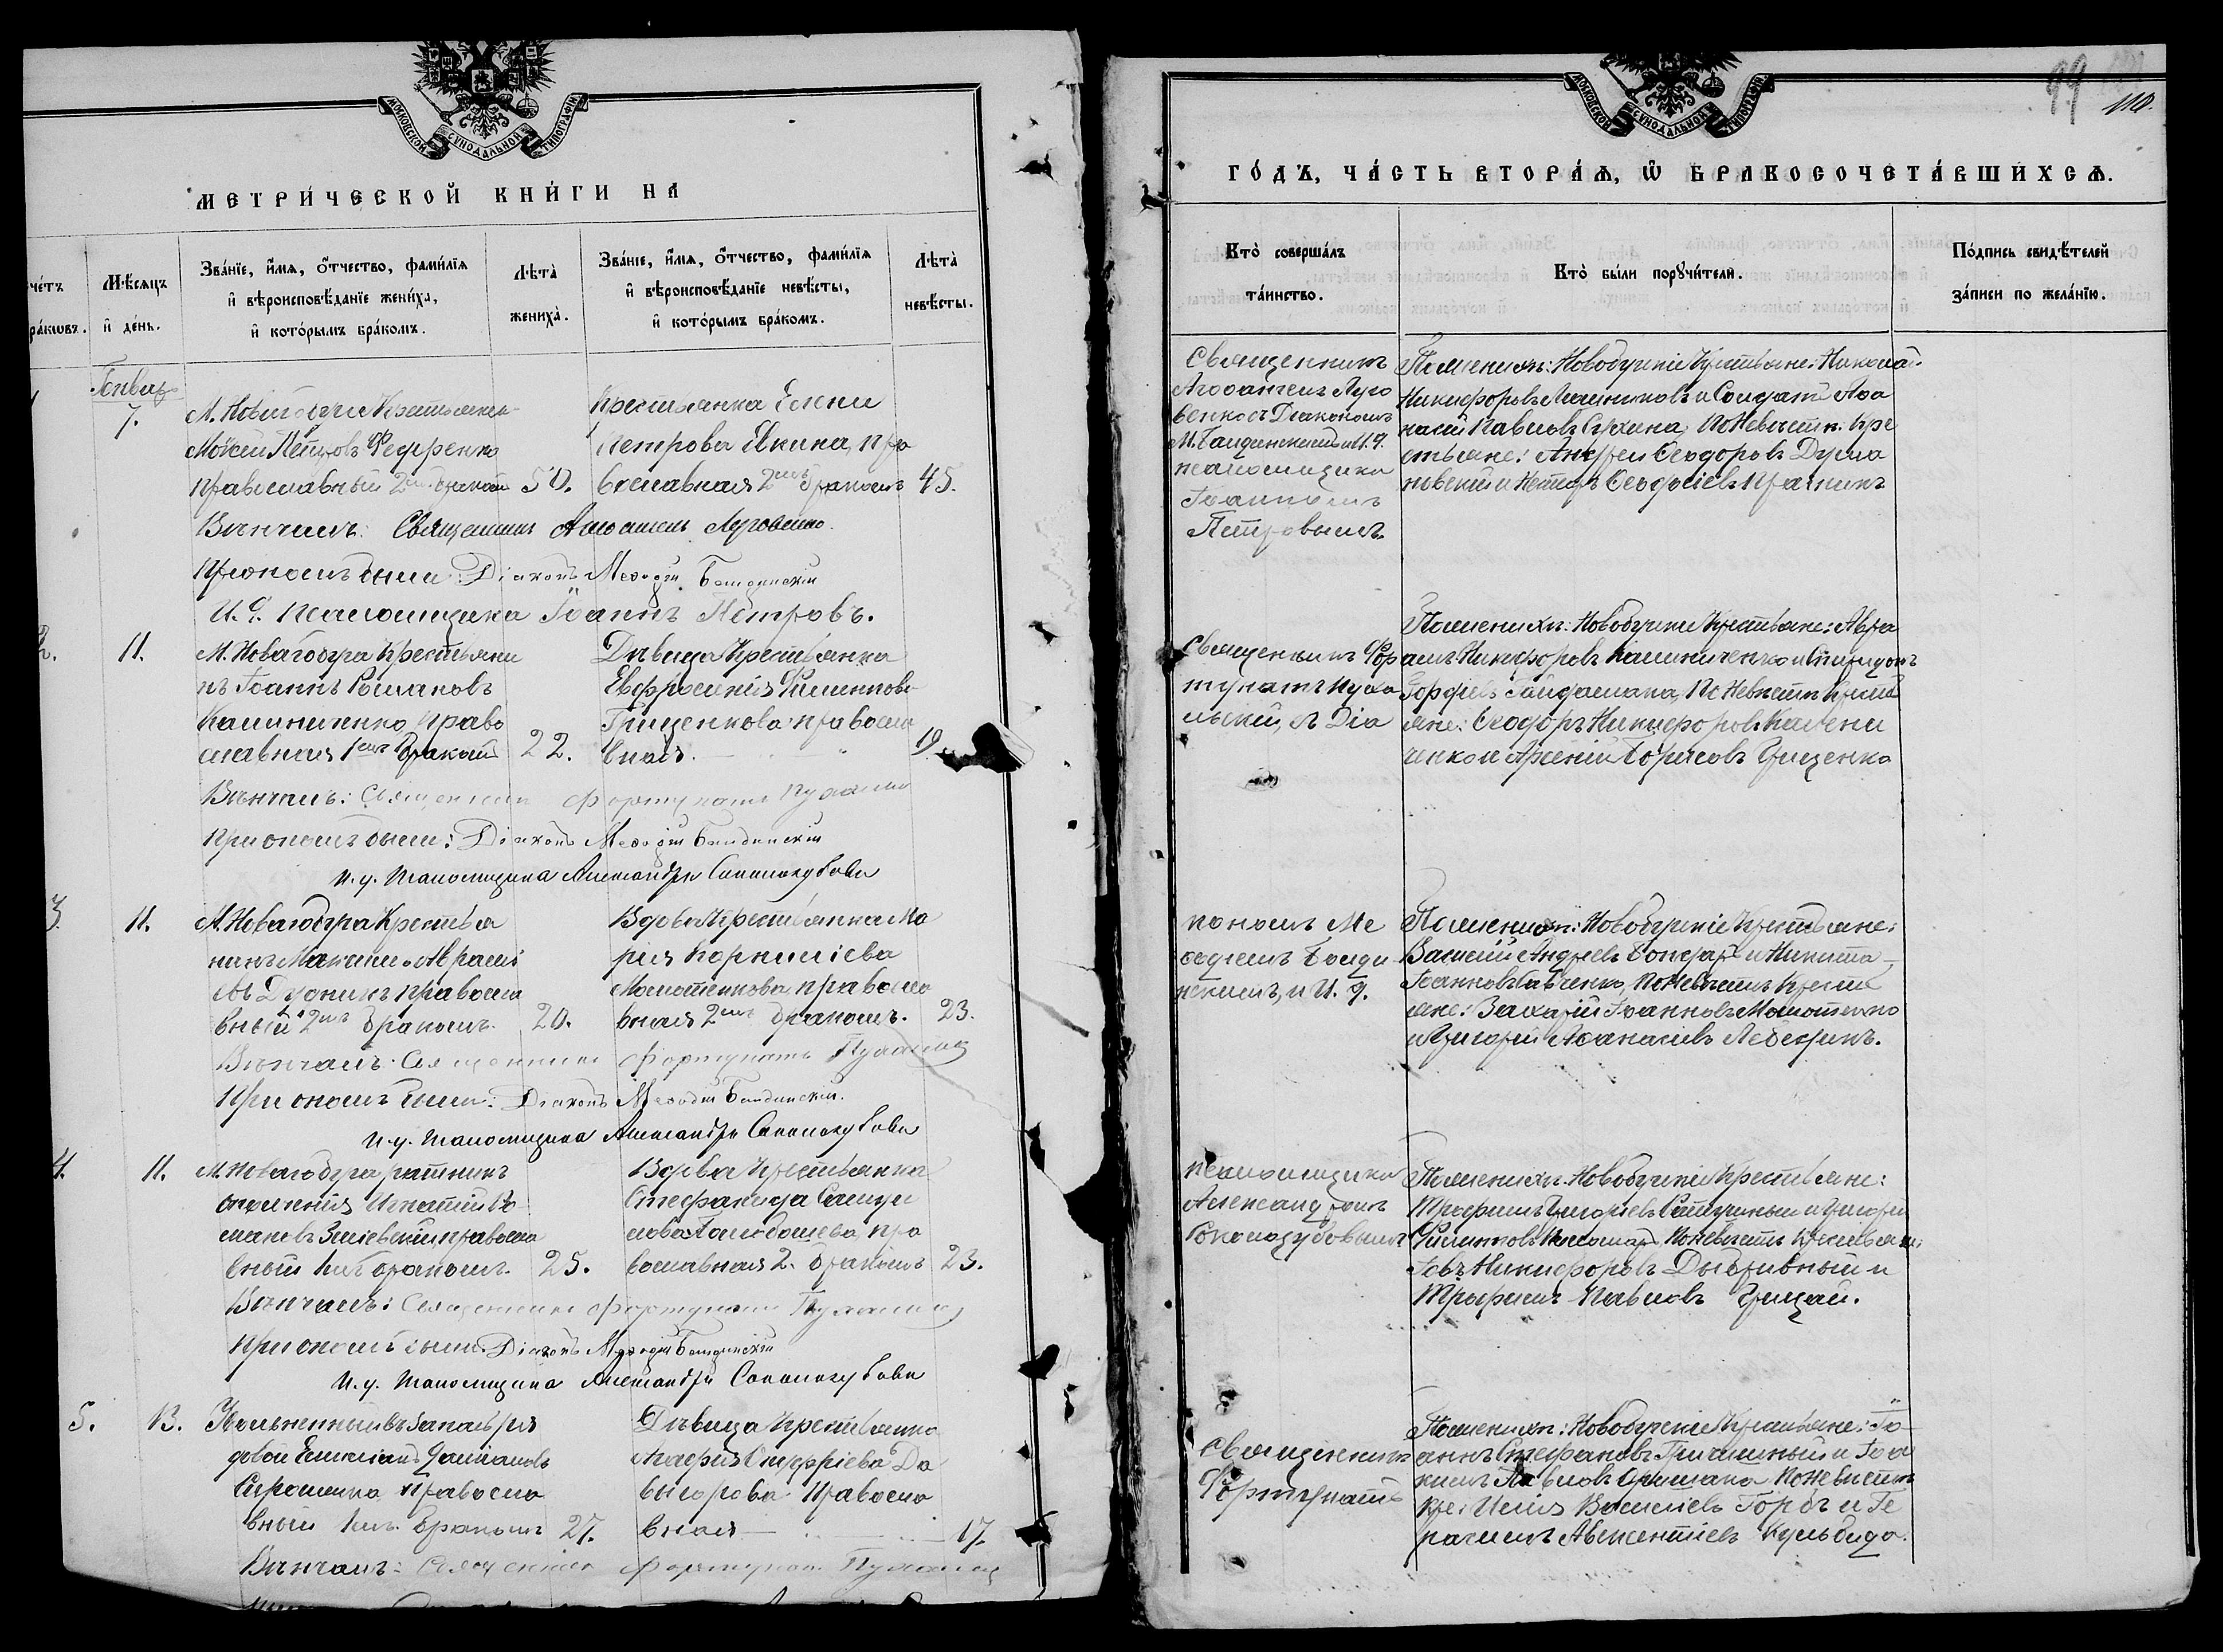 МОСКОВСКОЙ СѴНОДАЛЬНОЙ ТИПОГРАФІИ
МЕТРИ́ЧЕСКОЙ КНИ́ГИ НА
че́тъ
ра́кωвъ.
Мѣ́сяцъ
и҆ де́нь.
Зва́нїе, и҆́мѧ, ѻ҆́тчество, фами́лїѧ
и҆ вѣроисповѣ́данїе жениха̀,
и҆ кото́рымъ бра́комъ.
Лѣ́та
жениха̀.
Зва́нїе, и҆́мѧ, ѻ҆́тчество, фами́лїѧ
и҆ вѣроисповѣ́данїе невѣ́сты,
и҆ кото́рымъ бра́комъ.
Лѣ́та
невѣ́сты.
7.
Моѵсей Петровъ
православный 2мъ бракомъ 50.
Крестьянка Елена
Петрова Евкина, пра
вославная 2мъ бракомъ 45.
Вѣнчалъ: Священникъ Агаѳангелъ Луговенко.
При ономъ были: Діаконъ Меѳодій Балдинскій
И. д. псаломщика Іоаннъ Петровъ.
2. 11.
М. Новагобуга Крестьяни
нъ Іоаннъ Романовъ
Калиниченко, право
славный 1мъ бракомъ 22.
Дѣвица Крестьянка
Евфросинія Филиппова
Грищенкова правосла
вная. 19.
Вѣнчалъ: Священникъ Фортунатъ
При ономъ были: Діаконъ Меѳодій Балдинскій
И. д. псаломщика Александръ
3. 11.
М. Новагобуга Крестья
нинъ Максимъ Аврамі
въ Дудникъ правосла
вный 2мъ бракомъ. 20.
Вдова Крестьянка Ма
рія Корниліева
Молотенкова, правосла
вная 2мъ бракомъ. 23.
Вѣнчалъ: Священникъ Фортунатъ
При ономъ были: Діаконъ Меѳодій Балдинскій.
И. д. псаломщика Александръ
4. 11.
М. Новагобуга ратникъ
ополченія Игнатій Ро
мановъ Зміевскій правосла
вный 1мъ бракомъ. 25.
Вдова Крестьянка
Стефанида Самуи
лова, пра
вославная 2. бракомъ 23.
Вѣнчалъ: Священникъ Фортунатъ
При ономъ были Діаконъ Меѳодій Балдинскій
И. д. псаломщика Александръ
5. 13.
Уволенный въ запасъ ря
довой Емиліанъ Даміановъ
православ
вный 1мъ бракомъ 27.
Дѣвица Крестьянка
Агафія Онуфріева До
вгорова правосла
вная 17.
Вѣнчалъ: Священникъ Фортунатъ
99
110.
МОСКОВСКОЙ СѴНОДАЛЬНОЙ ТИПОГРАФІИ
ГО́ДЪ, ЧА́СТЬ ВТОРА́Ѧ, Ѿ БРАКОСОЧЕТА́ВШИХСѦ.
Кто̀ соверша́лъ
та́инство.
Кто̀ бы́ли порꙋчи́тели.
По́дпись свидѣ́телей
за́писи по жела́нїю.
Священникъ
Агаѳангелъ Луго
венко съ Діакономъ
М. Балдинскимъ и И. д.
псаломщика
Іоанномъ
Петровымъ.
По женихѣ: Новобугскіе Крестьяне: Николай
Никифоровъ и Солдатъ Аѳа
насій Павловъ. По невѣстѣ: Кре
стьяне: Андрей Ѳеодоровъ Дума
новскій и Петръ Ѳеодосіевъ
Священникъ Фор
тунатъ
съ Діа
По женихѣ: Новобугскіе Крестьяне: Авра
амъ Никифоровъ Калиниченко и Спиридонъ
Гордіевъ Гайдамака, По невѣстѣ Кресть
яне: Ѳеодоръ Никифоровъ Калини
ченко и Арсеній Борисовъ Грищенко
кономъ Ме
ѳодіемъ Балди
нскимъ, и И. д.
По женихѣ: Новобугскіе Крестьяне:
Василій Андреевъ Бондарь и Никита
Іоанновъ Савченко, По невѣстѣ Кресть
яне: Захарій Іоанновъ Молотенко
и Григорій Аѳанасіевъ Лебединъ.
псаломщика
Александромъ
По женихѣ. Новобугскіе Крестьяне:
Трофимъ Григоріевъ и Григорій
Филипповъ По невѣстѣ Крестьяне:
Іовъ Никифоровъ и
Трофимъ Павловъ Грицай.
Священникъ
Фортунатъ
По женихѣ: Новобугскіе Крестьяне: Іо
аннъ Стефановъ и Іоа
кимъ Павловъ По невѣстѣ
кре: Илія Василіевъ Горбъ и Ге
расимъ Авксентіевъ Кульбида.